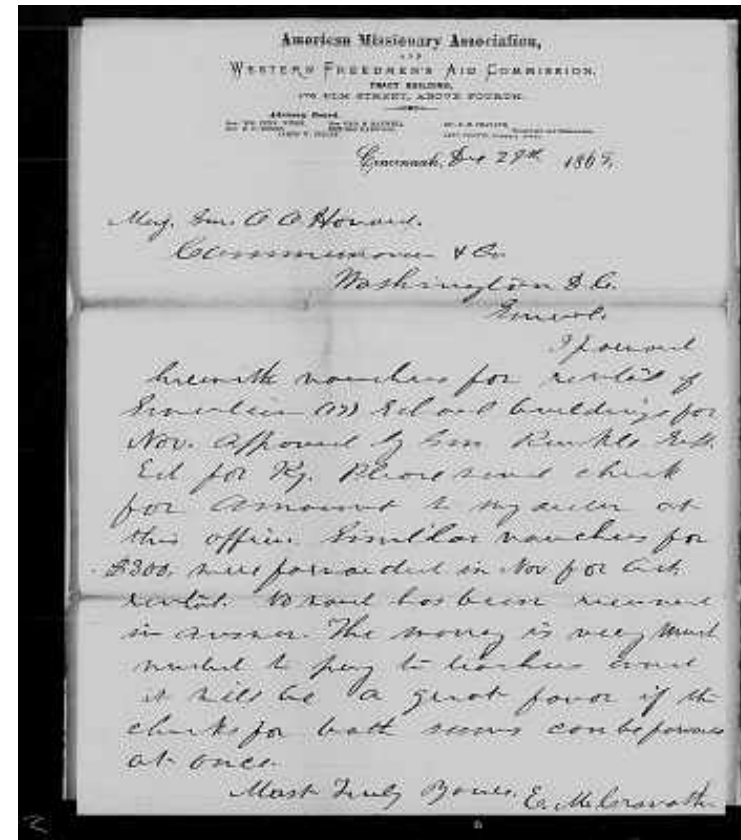 American Missionary Association,
AND
WESTERN FREEDMEN'S AID COMMISSION.
TRACT BUILDING,
ELM STREET, ABOVE FOURTH.
Advisory Board.
Cincinnati, Dec 28th 1869,
Maj. Gen. O O Howard.
Commissioner & Co
Washington D. C.
General.
I forward
herewith vouchers for rental of
School buildings for
Nov. Approved by Gen. Runkle Supt.
Ed for Ky. Please send check
for amount to my order at
this office. Similar vouchers for
$300, were forwarded in Nov for Oct.
rental. No word has been received
in answer. The money is very much
needed to pay to teachers and
it will be a great favor if the
checks for both sums can be
at once.
Most Truly Yours, E. M. Cravath